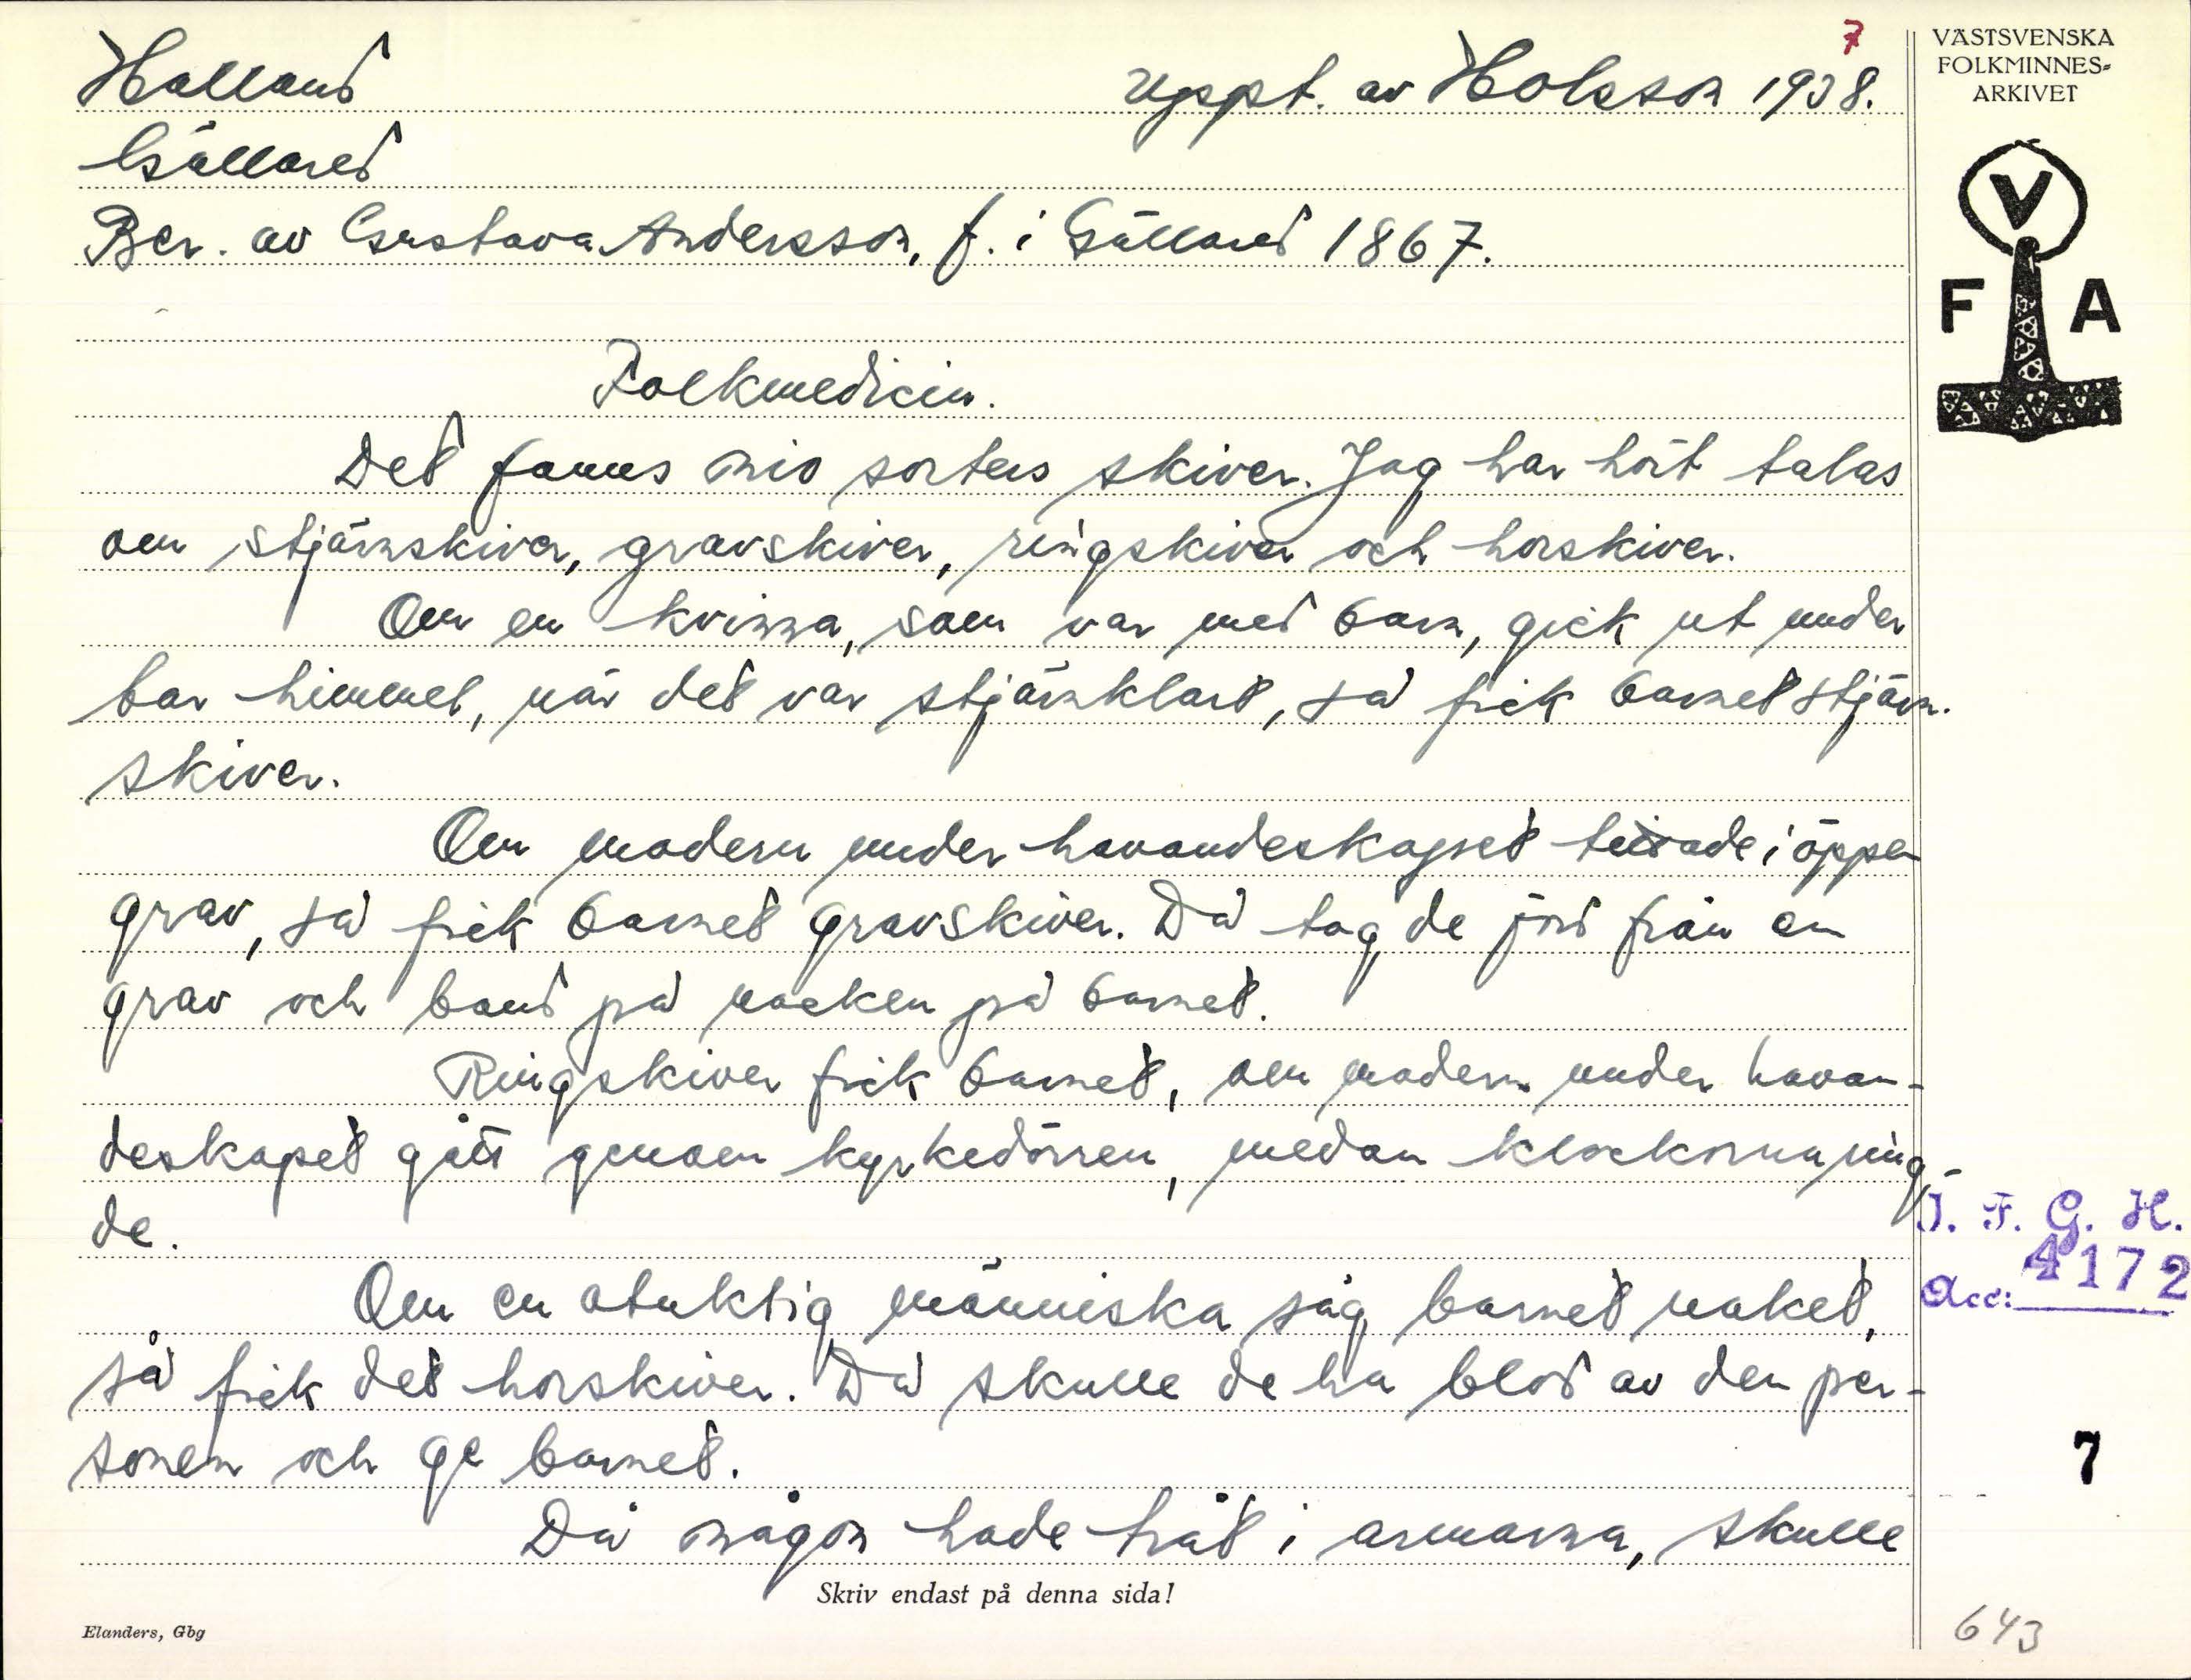 7
Halland
Uppt. av Holsson 1938.
Gällared
Ber. av Gustava Andersson, f. i Gällared 1867.
Folkmedicin.
Det fanns nio sorters skiver. Jag har hört talas
om stjärnskiver, gravskiver, ringskiver och horskiver.
Om en kvinna, som var med barn, gick ut under
bar himmel, när det var stjärnklart, så fick barnet stjärn-
skiver.
Om modern under havandeskapet tittade i öppen
grav, så fick barnet gravskiver. Då tog de jord från en
grav och band på nacken på barnet.
Ringskiver fick barnet, om modern under havan-
deskapet gått genom kyrkedörren, medan klockorna ring-
de.
Om en otuktig människa såg barnet naket,
så fick det horskiver. Då skulle de ha blod av den per-
sonen och ge barnet.
Då någon hade tråt i armarna, skulle
Skriv endast på denna sida!
Elanders, Gbg
VÄSTSVENSKA
FOLKMINNES-
ARKIVET
V
F A
I. F. G. H.
Acc: 4172
7
643